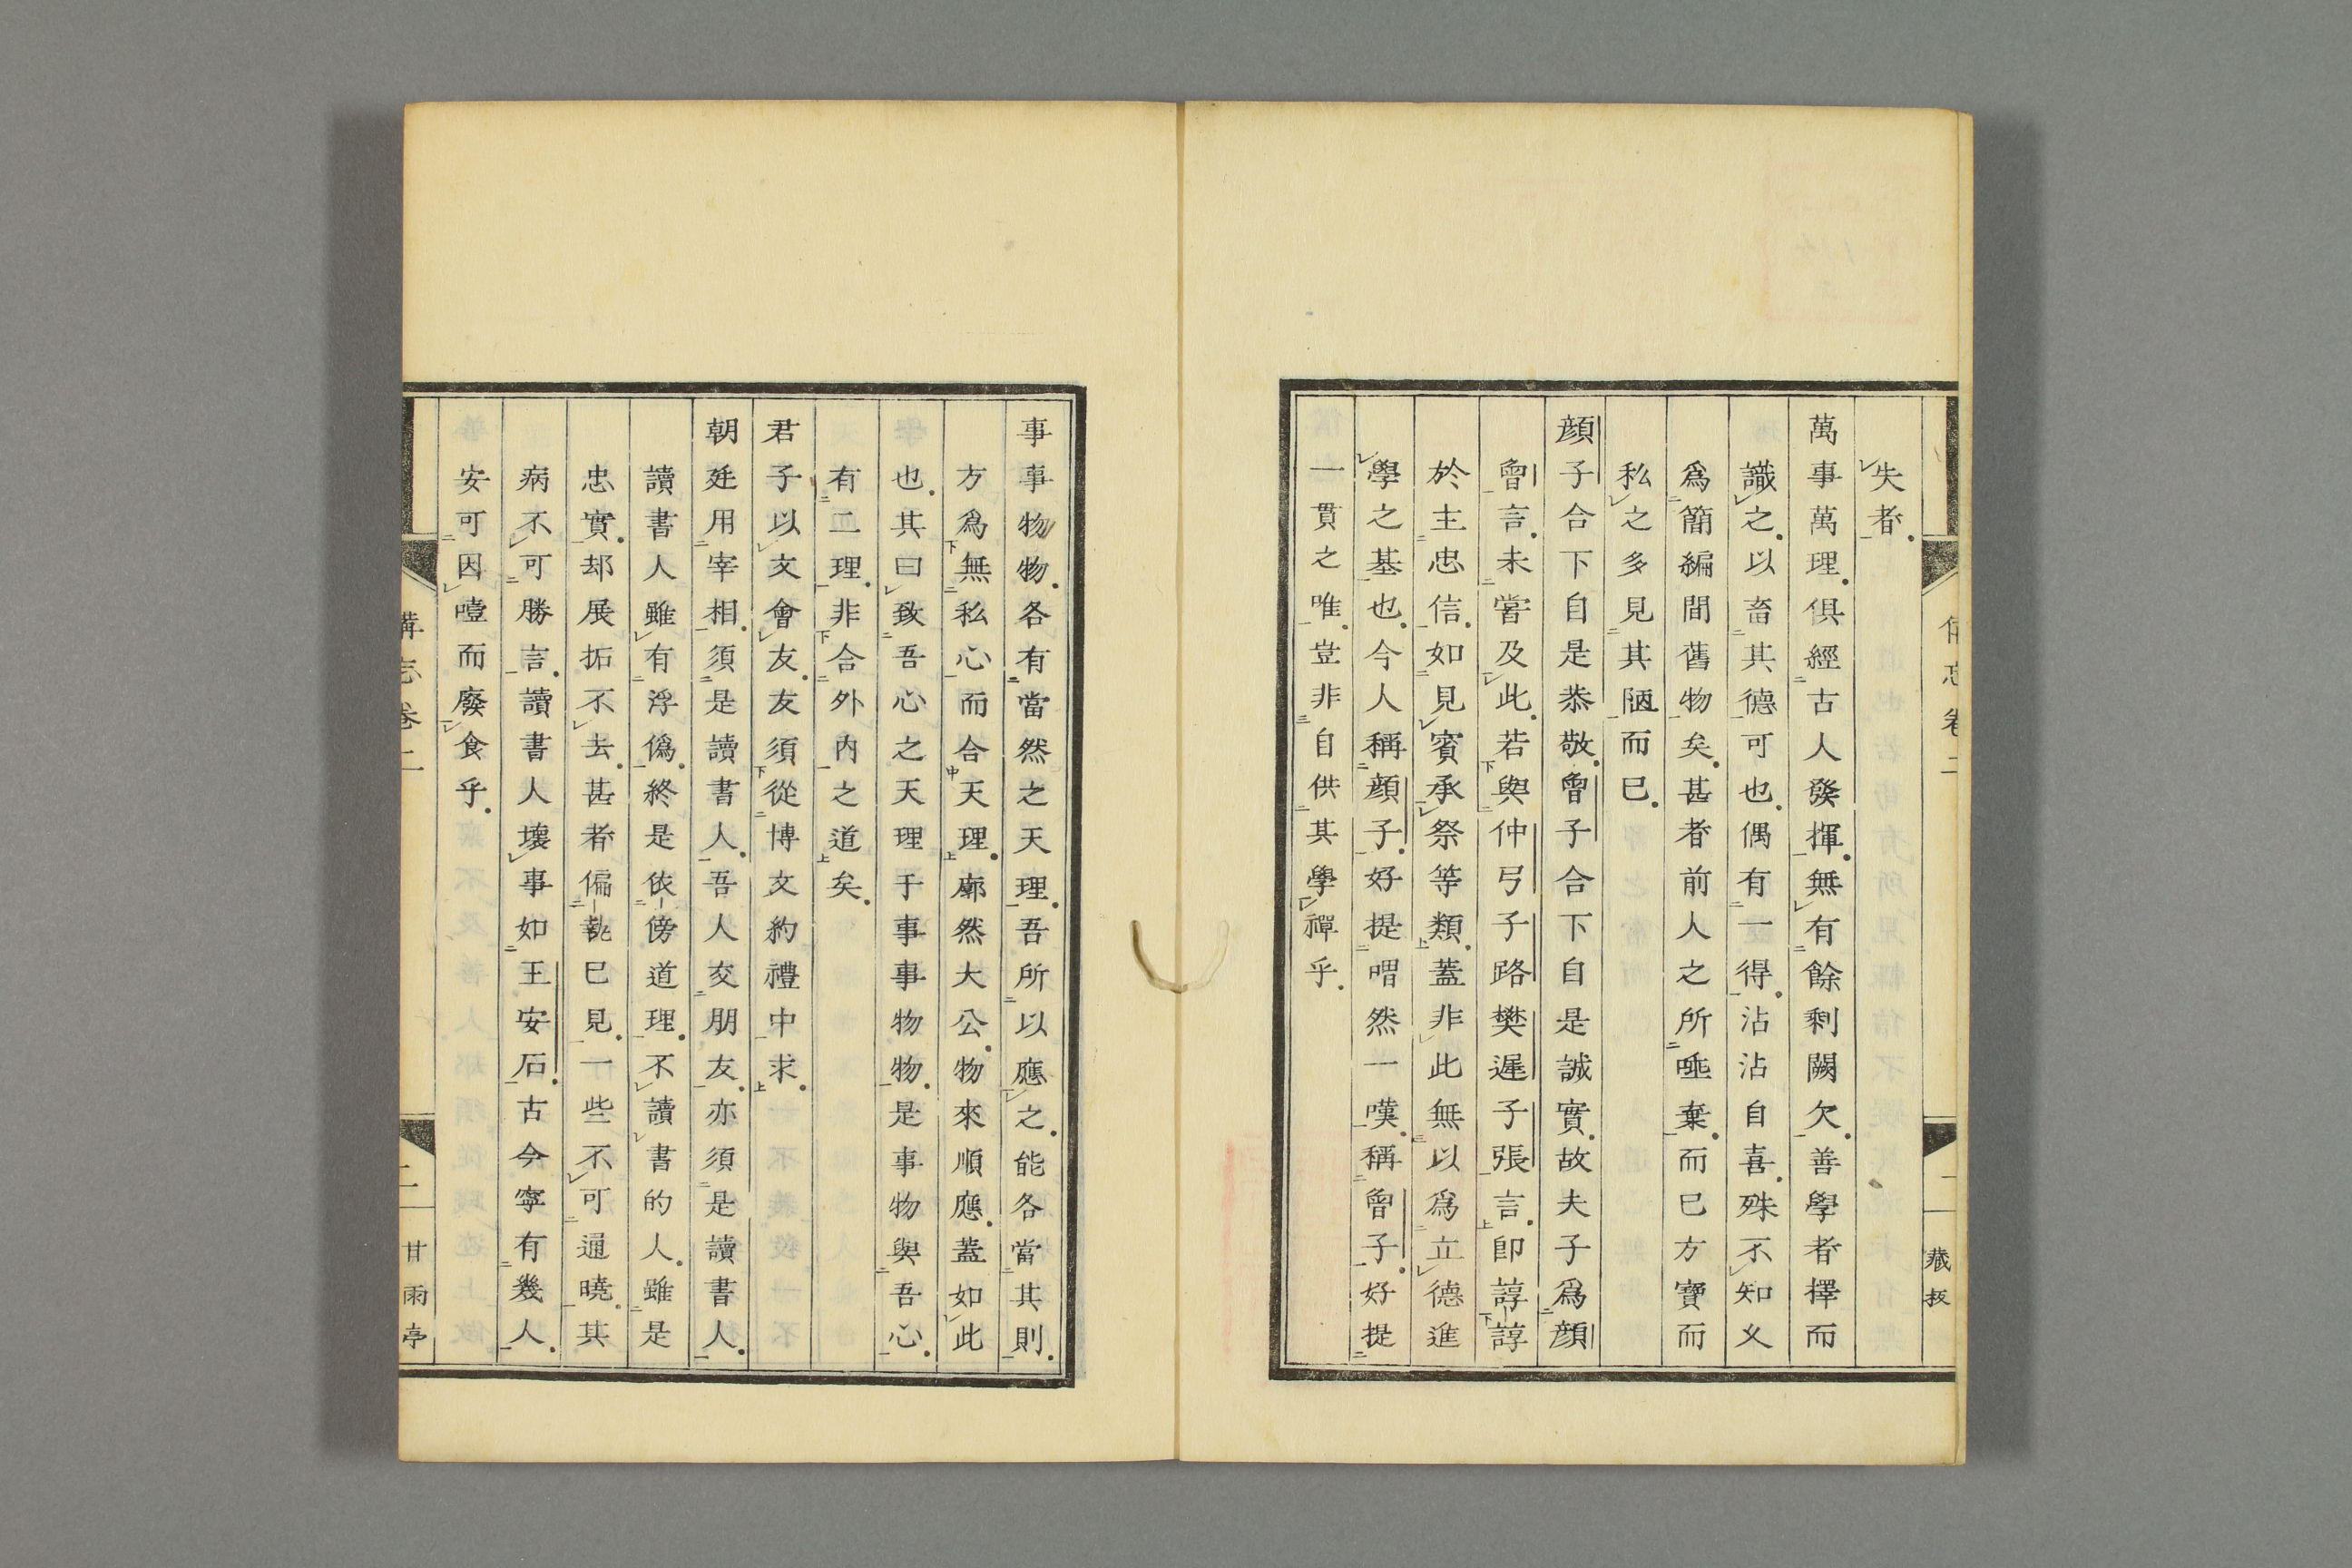 失者
萬事萬理俱經古人發揮無有餘剩闕欠善學者擇而
識之以畜其德可也偶有一得沾沾自喜殊不知乂
爲簡編間舊物矣甚者前人之所唾棄而巳方寶而
私之多見其陋而巳
顔子合下自是恭敬曾子合下自是誠實故夫子爲顔
曾言未嘗及此若與仲弓子路樊遲子張言卽諄諄
於主忠信如見賓承祭等類蓋非此無以爲立德進
學之基也今人稱顔子好提喟然一嘆稱曾子好提
一貫之唯豈非自供其學禪乎
事事物物各有當然之天理吾所以應之能各當其則
方爲無私心而合天理廓然大公物來順應蓋如此
也其曰致吾心之天理于事事物物是事物與吾心
有二理非合外內之道矣
君子以文會友友須從博文約禮中求
朝廷用宰相須是讀書人吾人交朋友亦須是讀書人
讀書人雖有浮僞終是依傍道理不讀書的人雖是
忠實却展拓不去甚者偏執巳見一些不可通曉其
病不可勝言讀書人壞事如王安石古今寧有幾人
安可因噎而廢食乎
備忘卷二
二
藏板
甘雨亭